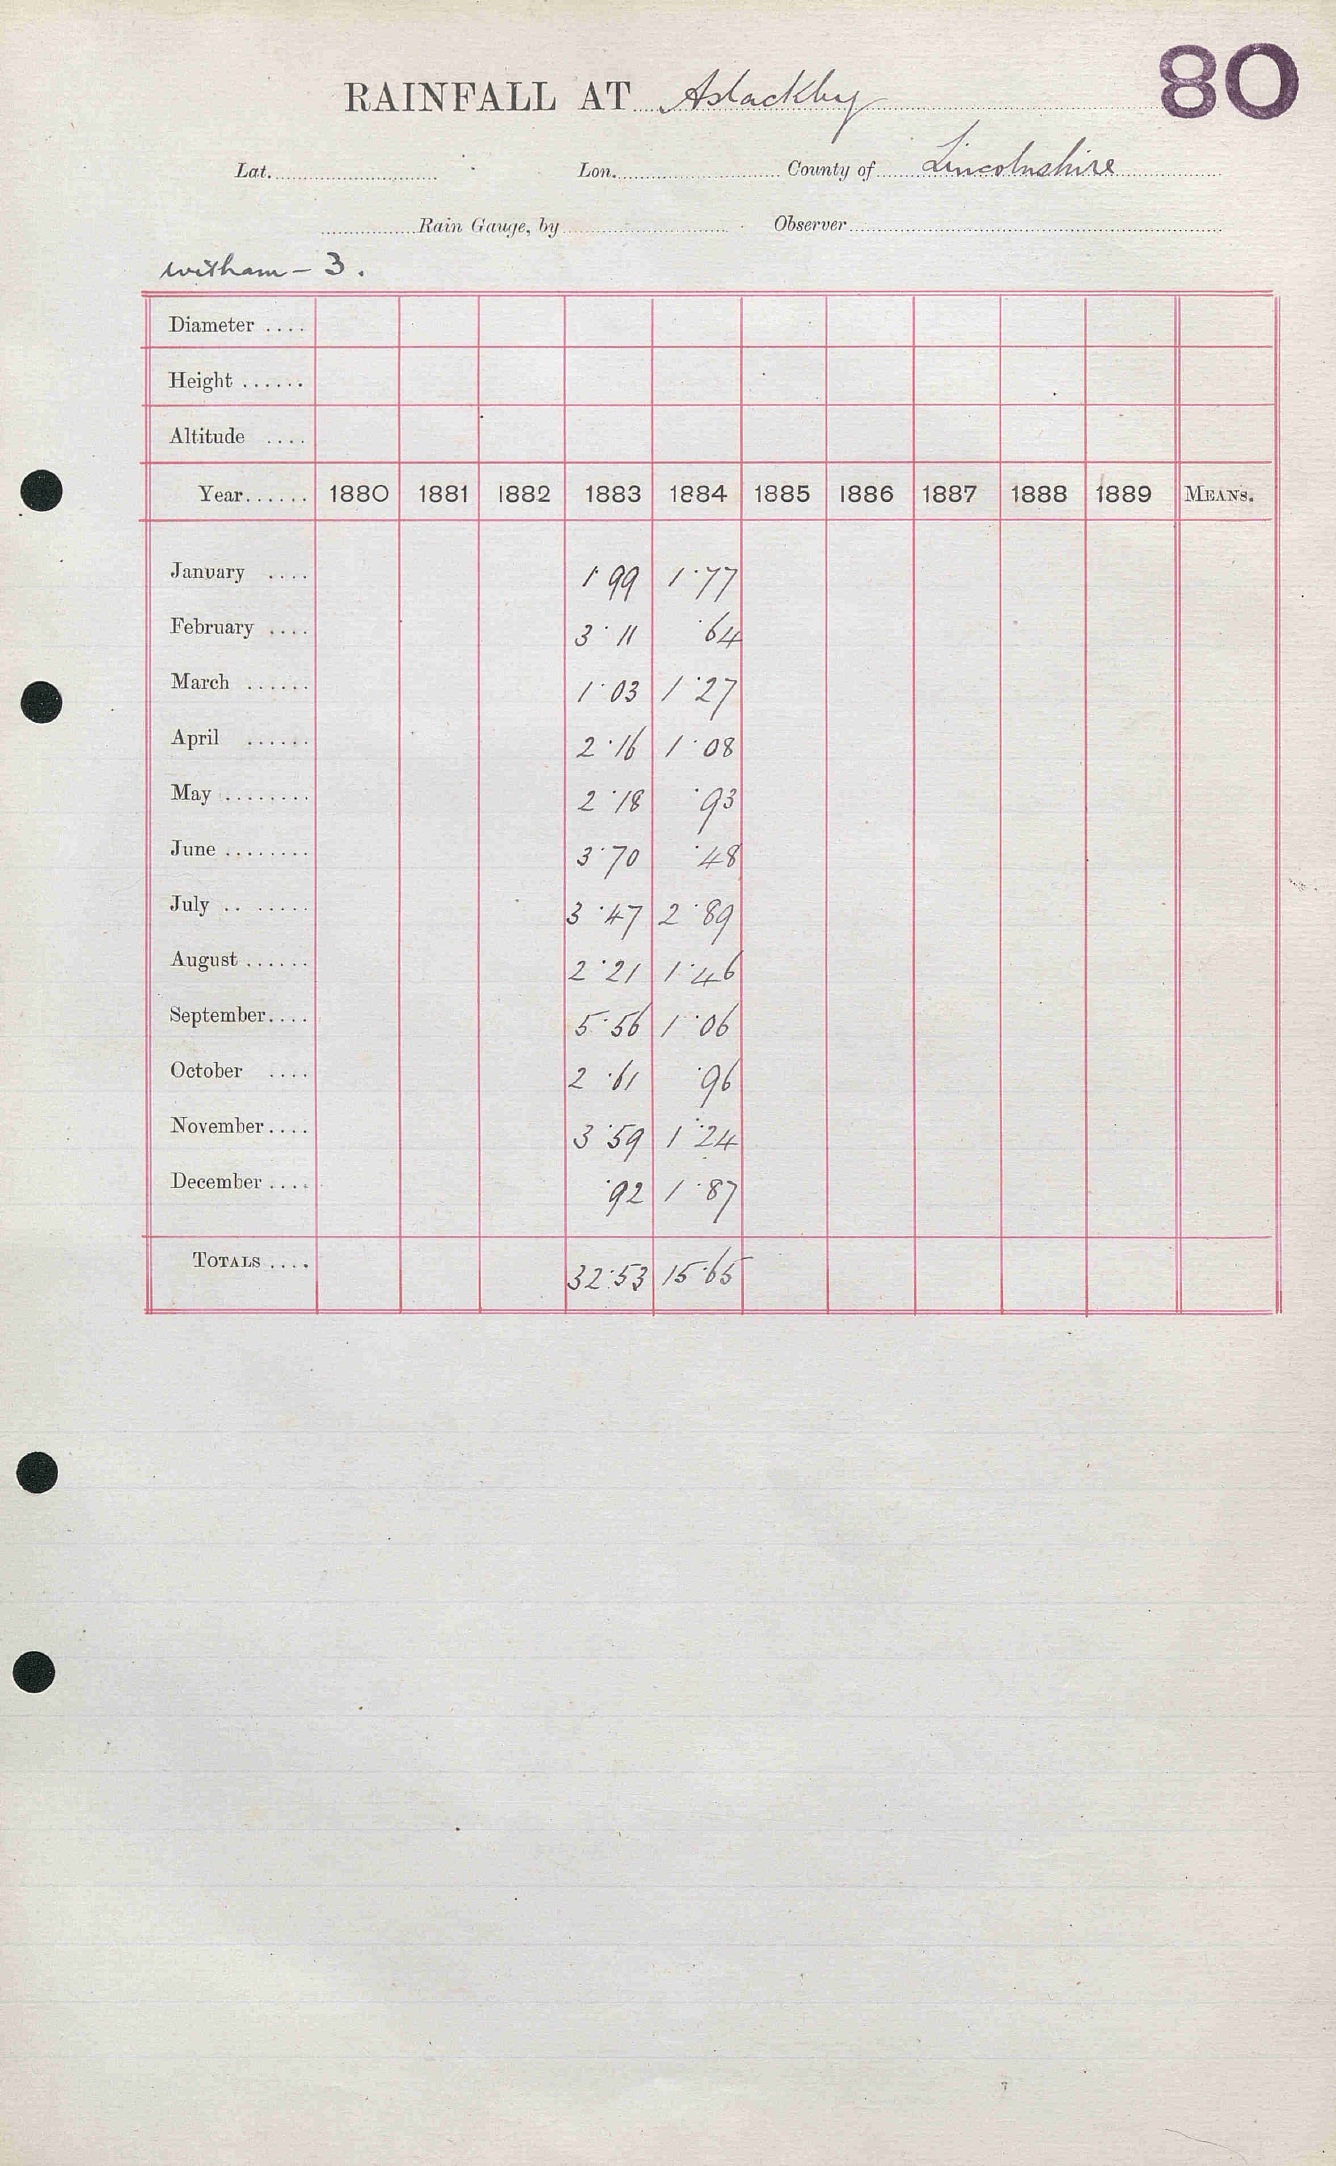 80
RAINFALL AT Aslackby
Lat. Lon. County of Lincolnshire
Rain Gauge, by Observer
Witham - 3.
Diameter ....
Height ......
Altitude ....
Year...... 1880 1881 1882 1883 1884 1885 1886 1887 1888 1889 MEANS.
January .... 1.99 1.77
February .... 3.11 .64
March ...... 1.03 1.27
April ...... 2.16 1.08
May ........ 2.18 .93
June ........ 3.70 .48
July .. ...... 3.47 2.89
August ...... 2.21 1.46
September.... 5.56 1.06
October .... 2.61 .96
November.... 3.59 1.24
December .... .92 1.87
TOTALS .... 32.53 15.65